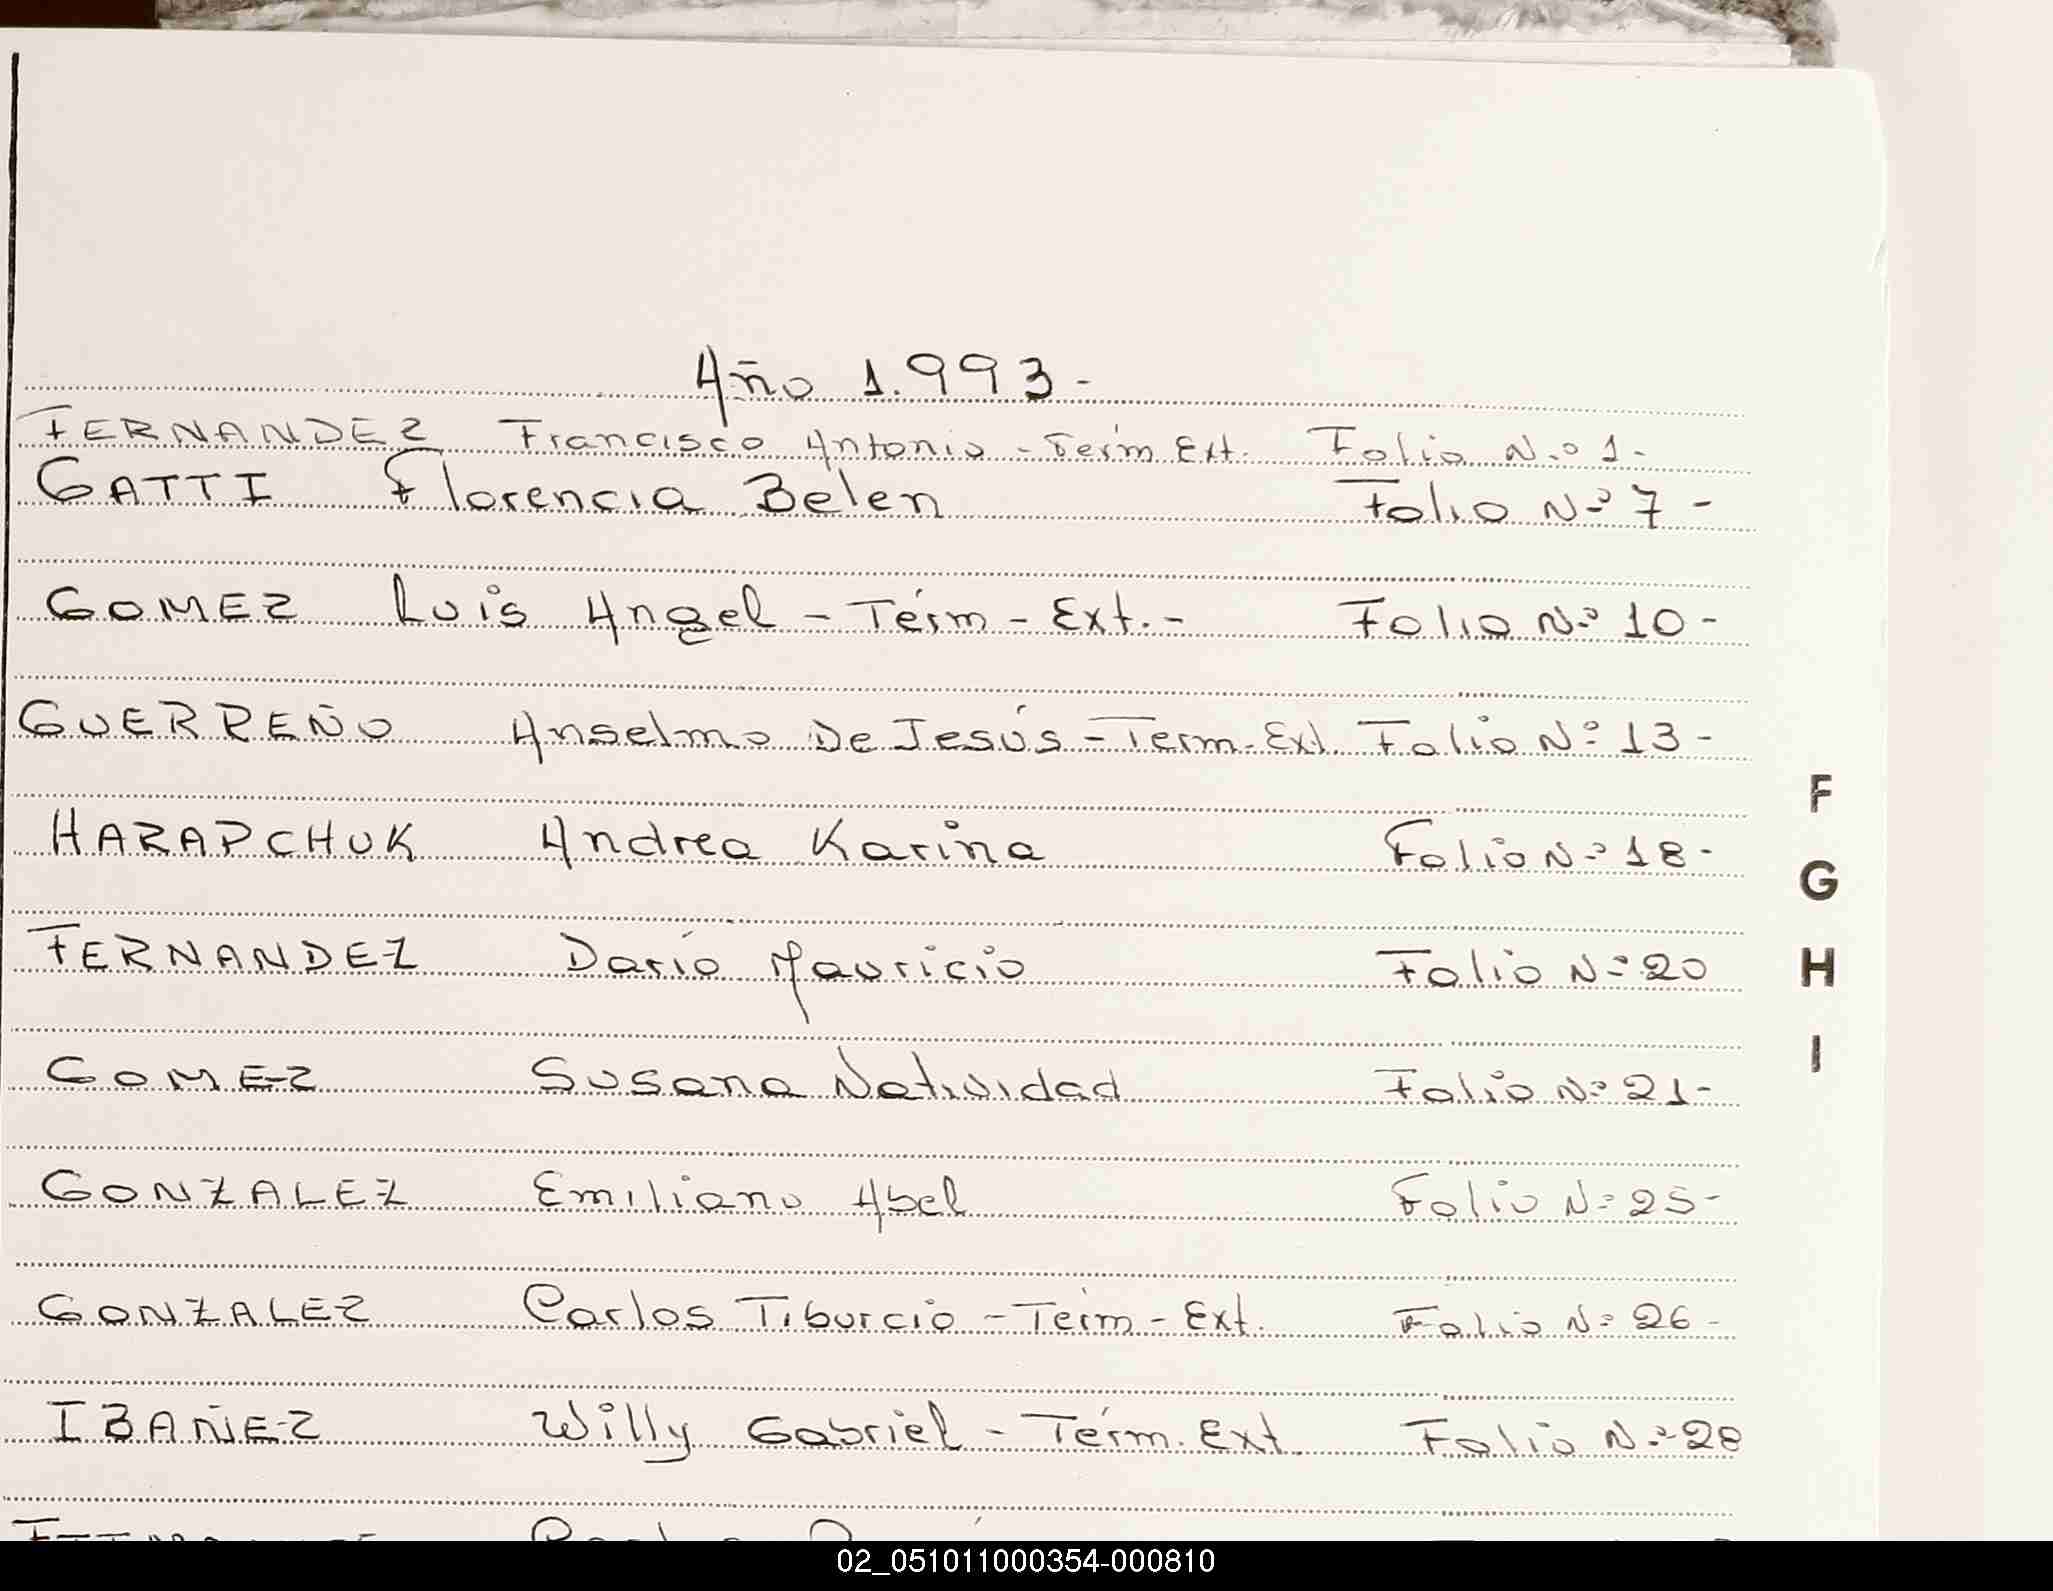 Año 1.993-
FERNANDEZ Francisco Antonio - Térm Ext. Folio N.º 1-
GATTI Florencia Belen Folio Nº 7-
GOMEZ Luis Angel - Térm - Ext.- Folio Nº 10-
GUERREÑO Anselmo De Jesús - Term. Ext. Folio Nº 13-
HARAPCHUK Andrea Karina Folio Nº 18-
FERNANDEZ Darío Mauricio Folio Nº 20
GOMEZ Susana Natividad Folio Nº 21-
GONZALEZ Emiliano Abel Folio Nº 25-
GONZALEZ Carlos Tiburcio - Térm - Ext. Folio Nº 26-
IBAÑEZ Willy Gabriel - Térm. Ext. Folio Nº 28
F
G
H
I
02_051011000354-000810